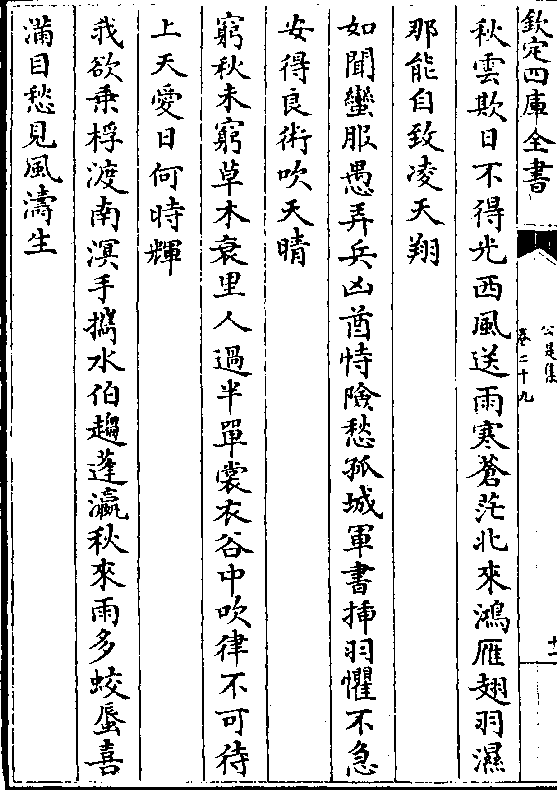 欽定四庫全書
公是集
卷二十九
十一
秋雲欺日不得光西風送雨寒蒼茫北來鴻雁翅羽濕
那能自致凌天翔
如聞蠻服愚弄兵凶酋恃險愁孤城軍書揷羽懼不急
安得良術吹天晴
窮秋未窮草木衰里人過半單裳衣谷中吹律不可待
上天愛日何時輝
我欲乗桴渡南溟手攜水伯趨蓬瀛秋來雨多蛟蜃喜
滿目愁見風濤生